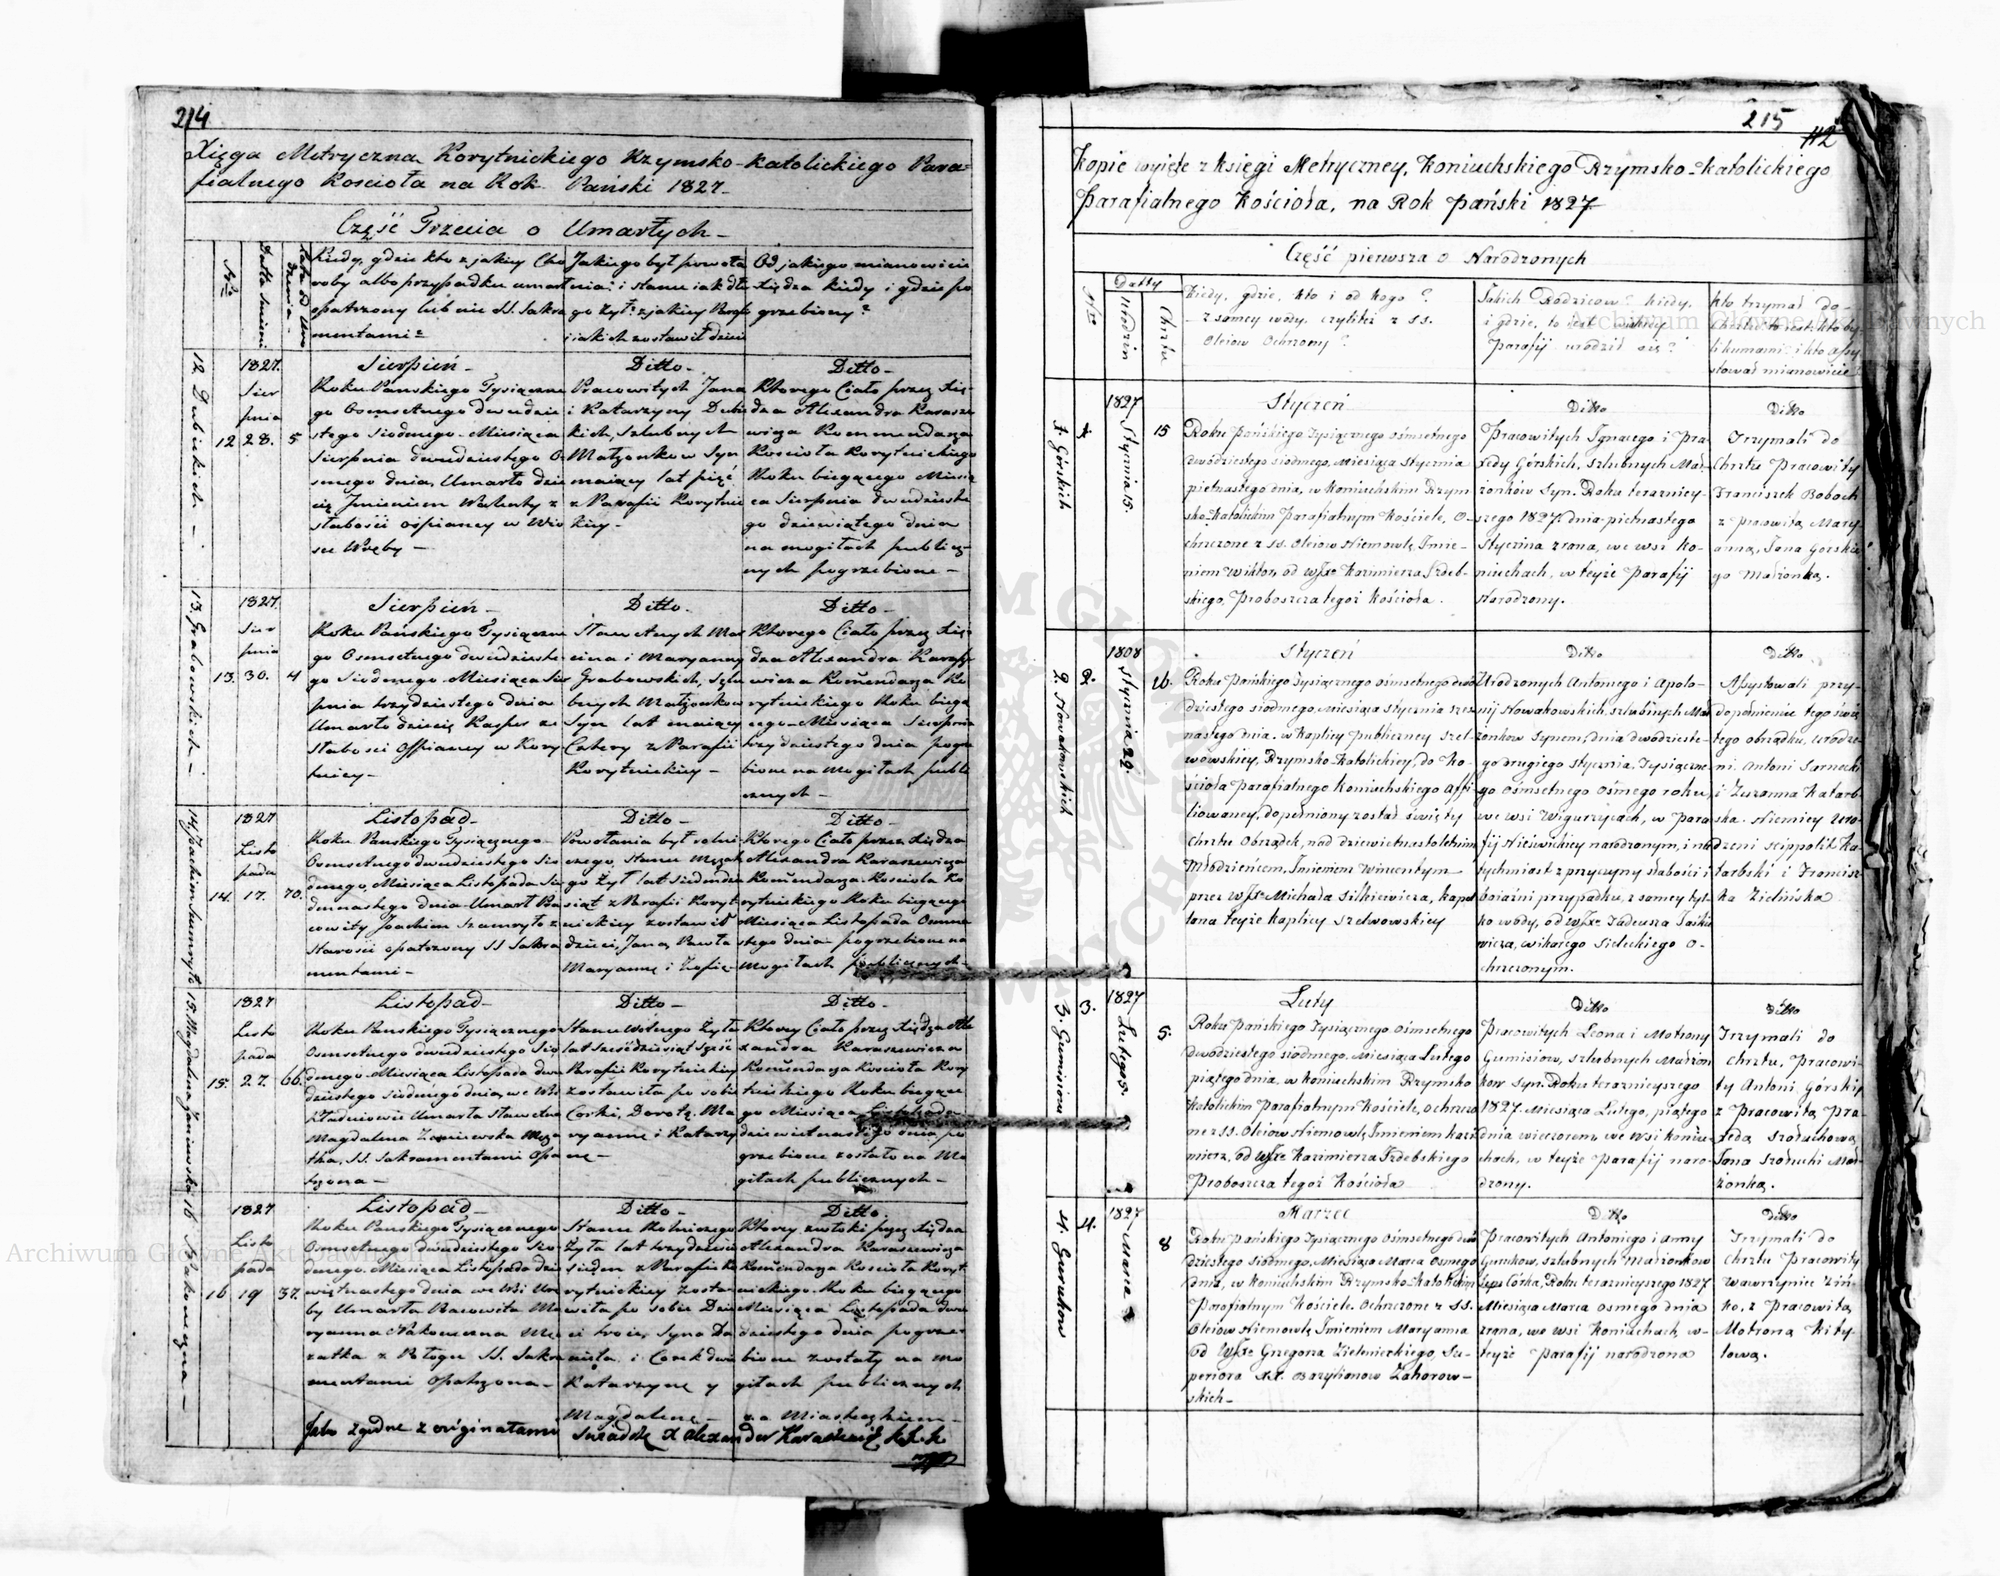 214
Xięga Metryczna Korytnickiego Rzymsko-Katolickiego Para-
fialnego Kościoła na Rok Pański 1827.
Część Trzecia o Umarłych
Nro
Datta Smierci
Kiedy, gdzie kto z jakiey Cho
roby albo przypadku umarł
opatrzony lub nie SS. Sakra
mentami?
Jakiego był powoła
nia? i stanu iak dłu
go żył? z jakiey Parafi
i iakich zostawił dzieci
Od jakiego mianowicie
Xiędza kiedy i gdzie po
grzebiony?
12. Dubickich
12
1827.
Sier
pnia
28.
5
Sierpień
Roku Panskiego Tysiączne
go Osmsetnego dwudzie
stego Siodmego Miesiąca
Sierpnia dwudziestego O-
smego dnia, Umarło dzie
cię Jmieniem Walenty z
słabości ospiancy w Wio
sce Wręby
Ditto
Pracowitych Jana
i Katarzyny Dubic
kich, Szlubnych
Małzonkow Syn
maiący lat pięć
z Parafii Korytnic
kiey
Ditto
Ktorego Ciało przez Xię-
dza Alexandra Karasze
wicza Kommendarza
Kościoła Korytnickiego
Roku biegącego Miesią
ca Sierpnia dwudzieste
go dziewiątego dnia
na mogiłach publicz-
nych pogrzebione
13. Grabowskich
13.
1827.
Sier
pnia
30.
4
Sierpień
Roku Pańskiego Tysiączne
go Osmsetnego dwudzieste
go Siodmego Miesiąca Sier
pnia trzydziestego dnia
Umarło dziecię Kasper ze
Słabosci Ospiancy w Kory
tnicy
Ditto
Sławetnych Mar
cina i Maryanny
Grabowskich, Szlu
bnych Małżonkow
Syn lat maiący
Cztery z Parafii
Korytnickiey
Ditto
Ktorego Ciało przez Xię-
dza Alexandra Karasze
wicza Komendarza Ko
rytnickiego Roku biegą
cego Miesiąca Sierpnia
trzydziestego dnia pogrze
bione na mogiłach publi
cznych
14.
1827
Listo
pada
17.
70.
Listopad
Roku Panskiego Tysiącznego
Osmsetnego dwudziestego Sio
dmego, Miesiąca Listopada Sie
dmnastego dnia Umarł Pra
cowity Joachim Szumryło z
Starosci opatrzony SS Sakra
mentami
Ditto
Powołania był rolni
czego, Stanu Męzate
go Żył lat siedmdzie
siąt z Parafii Koryt
nickiey zostawił
dzieci, Jana, Pawła
Maryannę i Zofię
Ditto
Ktorego Ciało przez Xiędza
Alexandra Karaszewicza
Komendarza Kościoła Ko
rytnickiego Roku biegącego
Miesiąca Listopada Osmna
stego dnia pogrzebione na
mogiłach publicznych
15. Magdalena Janiewska
15.
1827
Listo
pada
27.
66.
Listopad
Roku Panskiego Tysiącznego
Osmsetnego dwudziestego Sio
dmego Miesiąca Listopada dwu
dziestego siodmego dnia, we Wsi
Umarła Sławetna
Magdalena Męża
tka, SS. Sakramentami Opa
trzona
Ditto
Stanu Wolnego Żyła
lat Sześćdziesiąt Sześć
Parafii Korytnickiey
zostawiła po sobie
Corki, Dorotę, Ma
ryannę i Katarzy
nę
Ditto
Ktorey Ciało przez Xiędza Ale
xandra Karaszewicza
Komendarza Kościoła Kory
tnickiego Roku biegące
go Miesiąca Listopada
dziewietnastego dnia po
grzebione zostało na Mo
giłach publicznych
16
1827
Listo
pada
19
37.
Listopad
Roku Panskiego Tysiącznego
Osmsetnego dwudziestego Sio
dmego. Miesiąca Listopada dzie
więtnastego dnia we Wsi Wrę
by Umarła Pracowita Ma
ryanna Nakoneczna Mę
żatka z Połogu SS. Sakra
mentami Opatrzona
Ditto
Stanu Rolniczego
Żyła lat trzydzieści
siedm z Parafii Ko
rytnickiey zosta-
wiła po sobie Dzie
ci troie, Syna Da
niela i Corek dwie
Katarzynę y
Magdalenę
Ditto
Ktorey zwłoki przez Xiędza
Alexandra Karaszewicza
Komendarza Kościoła Koryt
nickiego Roku biegącego
Miesiąca Listopada dwu
dziestego dnia pogrze-
bione zostały na mo
giłach publicznych
za Miasteczkiem
Jako zgodne z originałami Swiadczę X Alexander Karaszewicz
215
112
Kopie wyięte z księgi Metryczney, Koniuchskiego Rzymsko-Katolickiego
Parafialnego Kościoła, na Rok Pański 1827
Część pierwsza o Narodzonych
Nro
Datty
Urodzin
Chrztu
Kiedy, gdzie, kto i od kogo?
z samey wody, czyliteż z SS.
Oleiow Ochrzczony?
Jakich Rodzicow? kiedy,
i gdzie, to iest w iakiey
Parafij urodził się?
Kto trzymał do
Chrztu to iest: kto by-
li kumami: i kto Assy-
stował mianowicie?
1. Górskich
1.
1827
Stycznia 15.
15
Styczeń
Roku Pańskiego Tysiącznego ośmsetnego
dwódziestego siodmego, Miesiąca Stycznia
pietnastego dnia, w Koniuchskim Rzym
sko-Katolickim Parafialnym Kościele, O-
chrzczone z SS. Oleiow Niemowle, Jmie-
niem Wiktor, od WJXc Kazimierza Izdeb-
skiego, Proboszcza tegoż Kościoła.
Ditto
Pracowitych Jgnacego i Pra
xedy Górskich, szlubnych Mał-
żonków Syn. Roku teraźniey-
szego 1827. dnia pietnastego
Stycznia zrana, we wsi Ko-
niuchach, w teyże Parafij
Narodzony.
Ditto
Trzymali do
Chrztu Pracowity
Franciszek Boboch
z Pracowitą Mary-
anną, Jana Górskie
go Małżonką.
2. Nowakowskich
2.
1808
Stycznia 22.
16
Styczeń
Roku Pańskiego Tysiącznego ośmsetnego dwó
dziestego siodmego, Miesiąca Stycznia szes
nastego dnia, w Kaplicy publiczney Szel-
wowskiey, Rzymsko-Katolickiey, do Ko-
ścioła Parafialnego Koniuchskiego Affi
liowaney, dopełniony został święty
Chrztu Obrządek, nad dziewietnastoletnim
Młodzieńcem, Jmieniem Wincentym
przez WJXc Michała Silkiewicza, kapel
lana teyże Kaplicy Szelwowskiey
Ditto
Urodzonych Antoniego i Apolo-
nij Nowakowskich, szlubnych Mał
żonkow Synem, dnia dwódzieste-
go drugiego Stycznia, Tysiączne
go Ośmsetnego Ośmego roku,
we wsi Wigurzycach, w Para
fij Nieświckiey narodzonym, i na
tychmiast z przyczyny słabości i
boiaźni przypadku, z samey tyl-
ko wody, od WJXc Tadeusza Jaśku
wicza, wikarego Sieleckiego o-
chrzczonym.
Ditto
Assystowali przy-
dopełnienie tego świę
tego obrządku, Urodze-
ni. Antoni Sarnecki
i Zuzanna Katarb-
ska. Niemiey Uro-
dzeni Scippolit Ka
tarbski i Francisz-
ka Zielińska
3. Gumisiow
3.
1827
Lutego 5.
5.
Luty
Roku Pańskiego Tysiącznego ośmsetnego
dwódziestego siodmego. Miesiąca Lutego
piątego dnia, w Koniuchskim Rzymsko
Katolickim Parafialnym Kościele, ochrzczo
ne z SS. Oleiow Niemowle, Jmieniem Kazi
mierz, od WJXc Kazimierza Izdebskiego
Proboszcza tegoż Kościoła
Ditto
Pracowitych Leona i Motrony
Gumisiow, szlubnych Małżon
kow Syn. Roku teraznieyszego
1827. Miesiąca Lutego, piątego
dnia wieczorem, we wsi Koniu-
chach, w teyże Parafij naro-
dzony.
Ditto
Trzymali do
Chrztu, Pracowi-
ty Antoni Górskiy
z Pracowitą Pra-
xedą Szołuchową
Jana Szołuchi Mał-
żonką.
4. Guruchow
4.
1827
Marca 8
8
Marzec
Roku Pańskiego Tysiącznego Ośmsetnego dwó
dziestego siodmego, Miesiąca Marca Osmego
dnia, w Koniuchskim Rzymsko-Katolickim
Parafialnym Kościele. Ochrzczone z SS.
Oleiow Niemowle, Jmieniem Maryanna
od WJXc Grzegorza Zielenieckiego, Su-
periora XX. Bazylianow Zahorow-
skich
Ditto
Pracowitych Antoniego i Anny
Guruchow, szlubnych Małżonkow
Córka, Roku teraznieyszego 1827
Miesiąca Marca osmego dnia
zrana, we wsi Koniuchach, w-
teyże Parafij narodzona
Ditto
Trzymali do
Chrztu Pracowity
Wawrzyniec Zin-
ko, z Pracowitą
Motroną Kity-
łową.
Archiwum Główne Akt Dawnych
Archiwum Główne Akt Dawnych